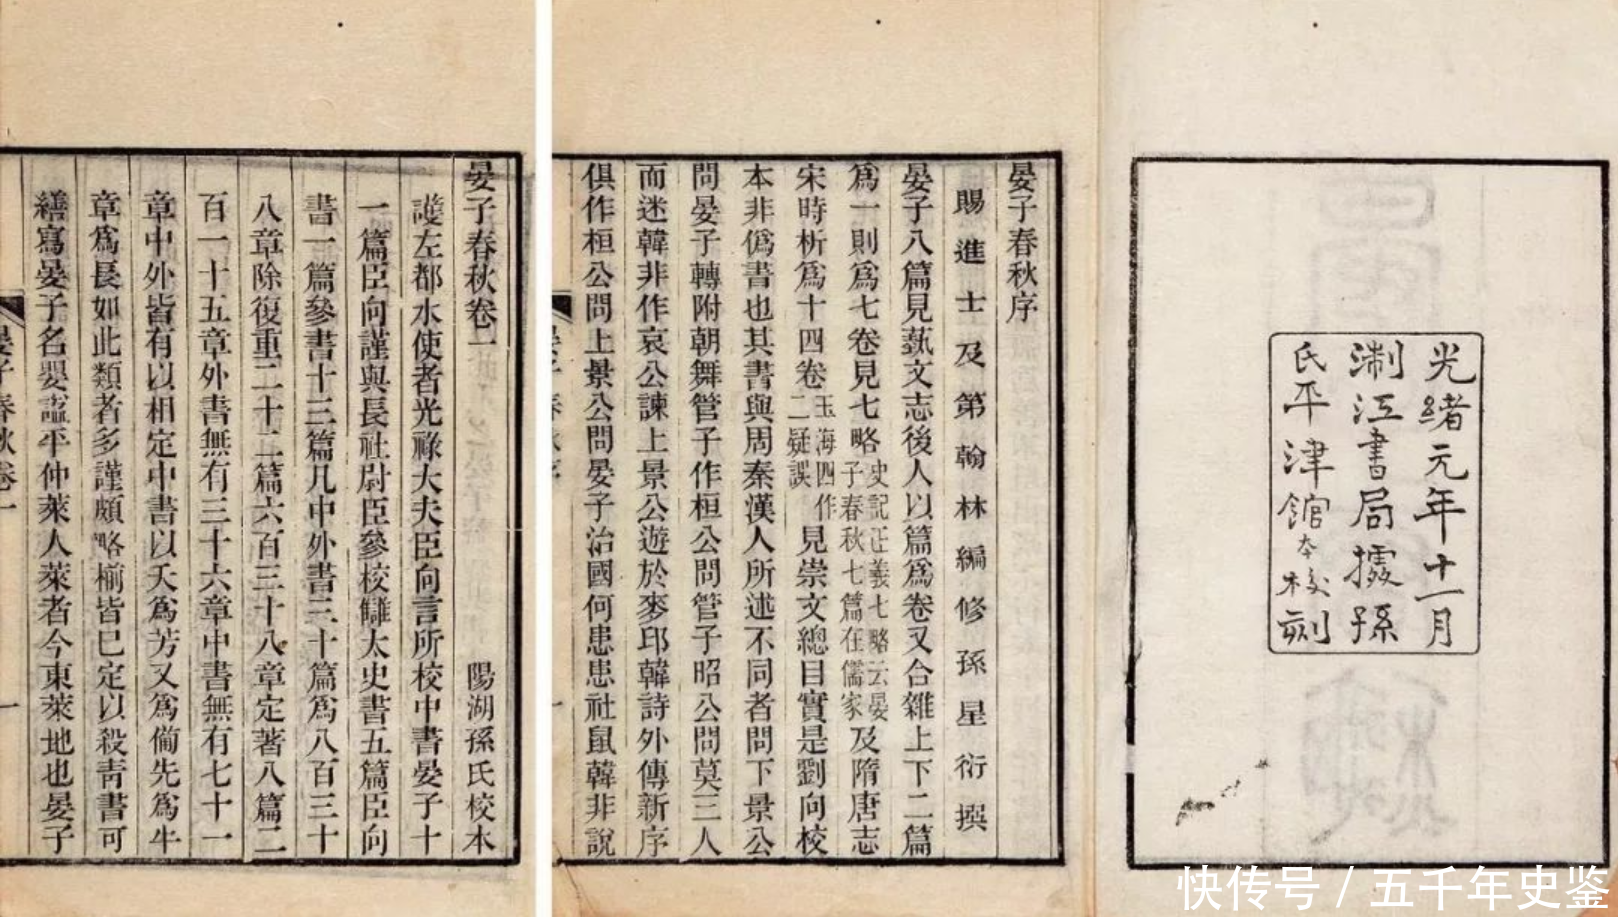 光緒元年十一月
淛江書局據孫
氏平津館本校刻
晏子春秋序
賜進士及第翰林編修孫星衍撰
晏子八篇見藝文志後人以篇爲卷又合雜上下二篇
爲一則爲七卷見七略史記正義七略云晏子春秋七篇在儒家及隋唐志
宋時析爲十四卷玉海四作二疑誤見崇文總目實是劉向校
本非僞書也其書與周秦漢人所述不同者問下景公
問晏子轉附朝舞管子作桓公問管子昭公問莫三人
而迷韓非作哀公諫上景公遊於麥邱韓詩外傳新序
俱作桓公問上景公問晏子治國何患患社鼠韓非說
晏子春秋序
晏子春秋卷一
陽湖孫氏校本
護左都水使者光祿大夫臣向言所校中書晏子十
一篇臣向謹與長社尉臣參校讎太史書五篇臣向
書一篇參書十三篇凡中外書三十篇爲八百三十
八章除復重二十二篇六百三十八章定著八篇二
百一十五章外書無有三十六章中書無有七十一
章中外皆有以相定中書以夭爲芳又爲備先爲牛
章爲長如此類者多謹頗略椾皆已定以殺青書可
繕寫晏子名嬰謚平仲萊人萊者今東萊地也晏子
晏子春秋卷一
一
快传号 / 五千年史鉴